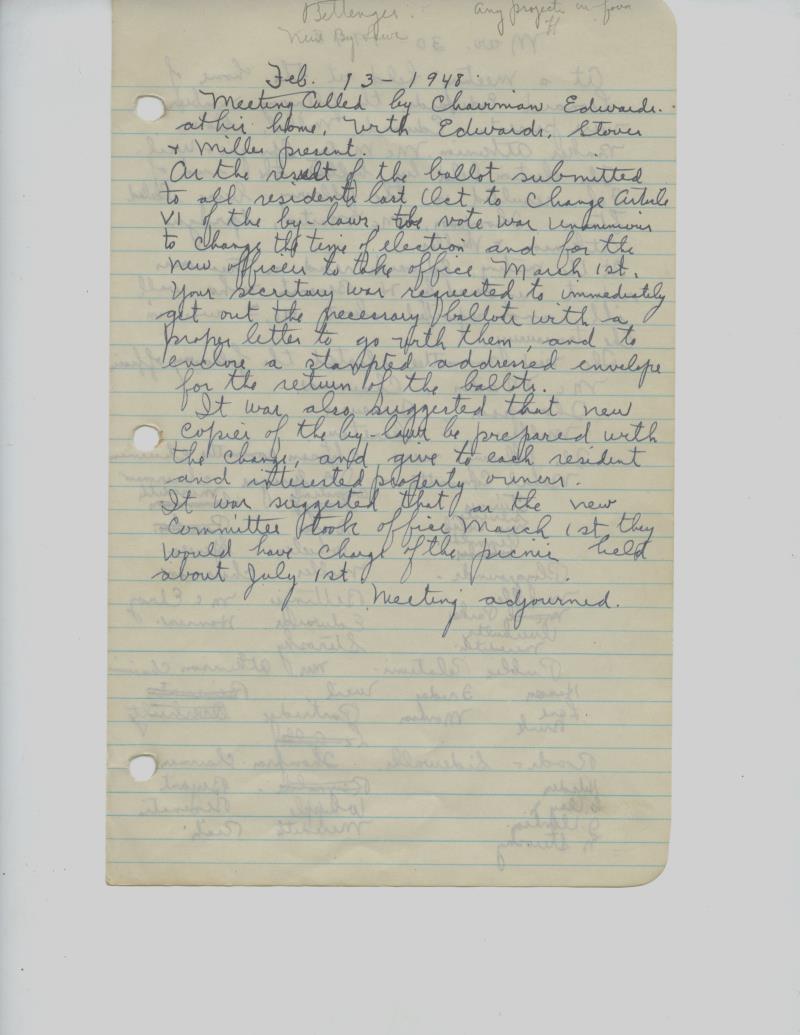 Bettenger.
Any projects in
Feb. 13 - 1948
Meeting Called by Chairman Edwards.
at his home, with Edwards, Stover
& Miller present.
As the result of the ballot submitted
to all residents last Oct to Change Article
VI of the by-laws, the vote was unanimous
to change the time of election and for the
new officers to take office March 1st.
Your secretary was requested to immediately
get out the necessary ballots with a
proper letter to go with them, and to
enclose a stampted addressed envelope
for the return of the ballots.
It was also suggested that new
copies of the by-laws be prepared with
the change, and give to each resident
and interested property owners.
It was suggested that as the new
Committee took office March 1st they
would have charge of the picnic held
about July 1st.
Meeting adjourned.